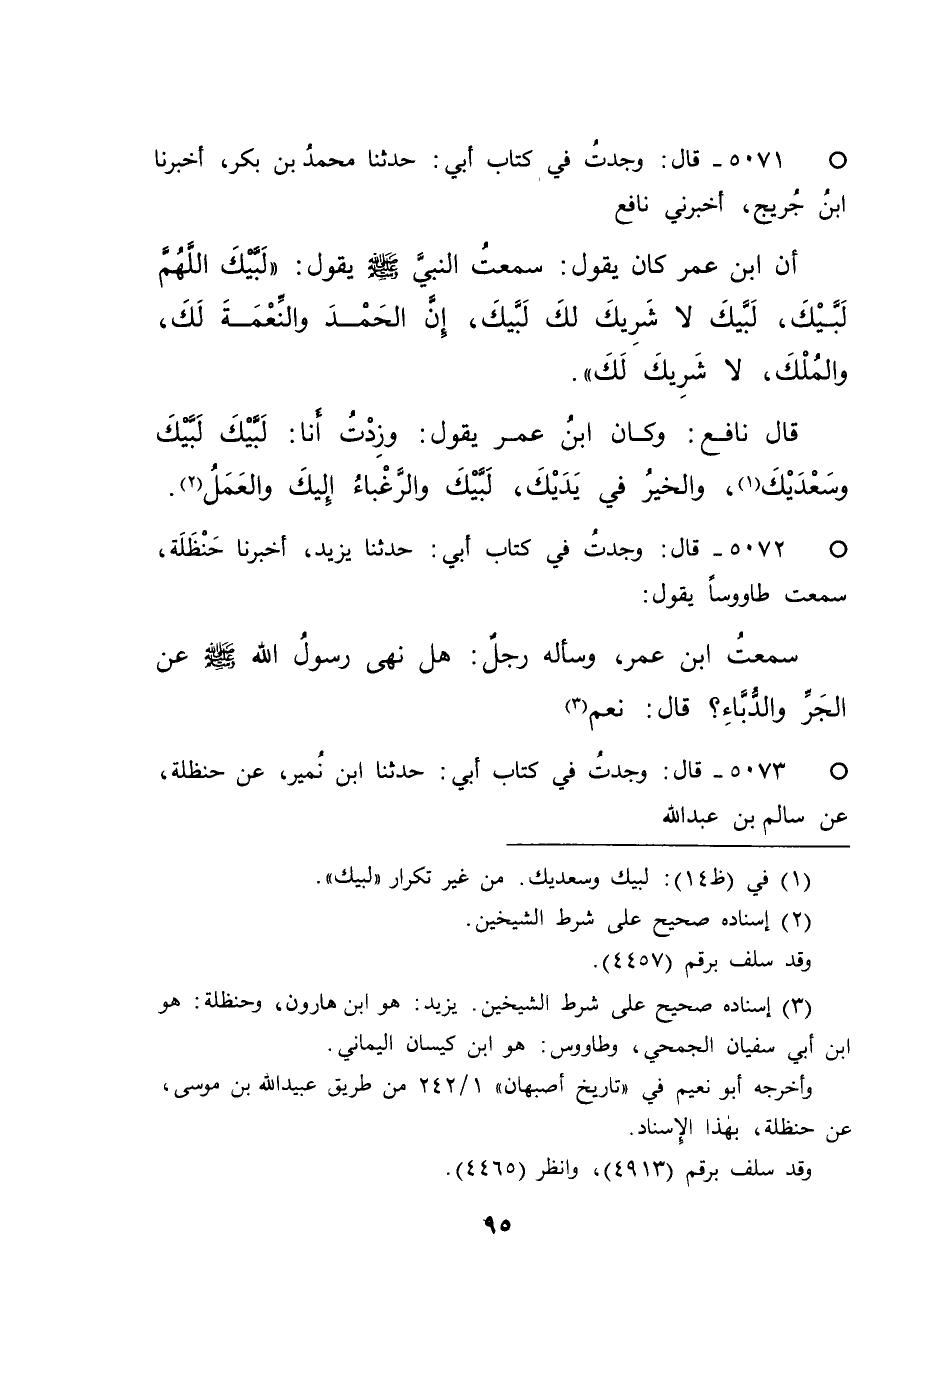 ○ ٥٠٧١ ـ قال: وجدتُ في كتاب أبي: حدثنا محمدُ بن بكر، أخبرنا
ابنُ جُريج، أخبرني نافع
أن ابن عمر كان يقول: سمعتُ النبيَّ ﷺ يقول: «لَبَّيْكَ اللَّهُمَّ
لَبَّيْكَ، لَبَّيكَ لا شَرِيكَ لكَ لَبَّيكَ، إِنَّ الحَمْـدَ والنِّعْمَـةَ لَكَ،
والمُلْكَ، لا شَرِيكَ لَكَ».
قال نافع: وكان ابنُ عمر يقول: وزِدْتُ أَنا: لَبَّيْكَ لَبَّيْكَ
وسَعْدَيْكَ(١)، والخيرُ في يَدَيْكَ، لَبَّيْكَ والرَّغْباءُ إِليكَ والعَمَلُ(٢).
○ ٥٠٧٢ ـ قال: وجدتُ في كتاب أبي: حدثنا يزيد، أخبرنا حَنْظَلَة،
سمعت طاووساً يقول:
سمعتُ ابن عمر، وسأله رجلٌ: هل نهى رسولُ الله ﷺ عن
الجَرِّ والدُّبَّاءِ؟ قال: نعم(٣)
○ ٥٠٧٣ ـ قال: وجدتُ في كتاب أبي: حدثنا ابن نُمير، عن حنظلة،
عن سالم بن عبدالله
(١) في (ظ١٤): لبيك وسعديك. من غير تكرار «لبيك».
(٢) إسناده صحيح على شرط الشيخين.
وقد سلف برقم (٤٤٥٧).
(٣) إسناده صحيح على شرط الشيخين. يزيد: هو ابن هارون، وحنظلة: هو
ابن أبي سفيان الجمحي، وطاووس: هو ابن كيسان اليماني.
وأخرجه أبو نعيم في «تاريخ أصبهان» ٢٤٢/١ من طريق عبيدالله بن موسى،
عن حنظلة، بهٰذا الإسناد.
وقد سلف برقم (٤٩١٣)، وانظر (٤٤٦٥).
٩٥